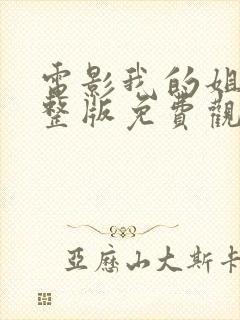 電影我的姐
整版免費觀
亞歷山大斯卡